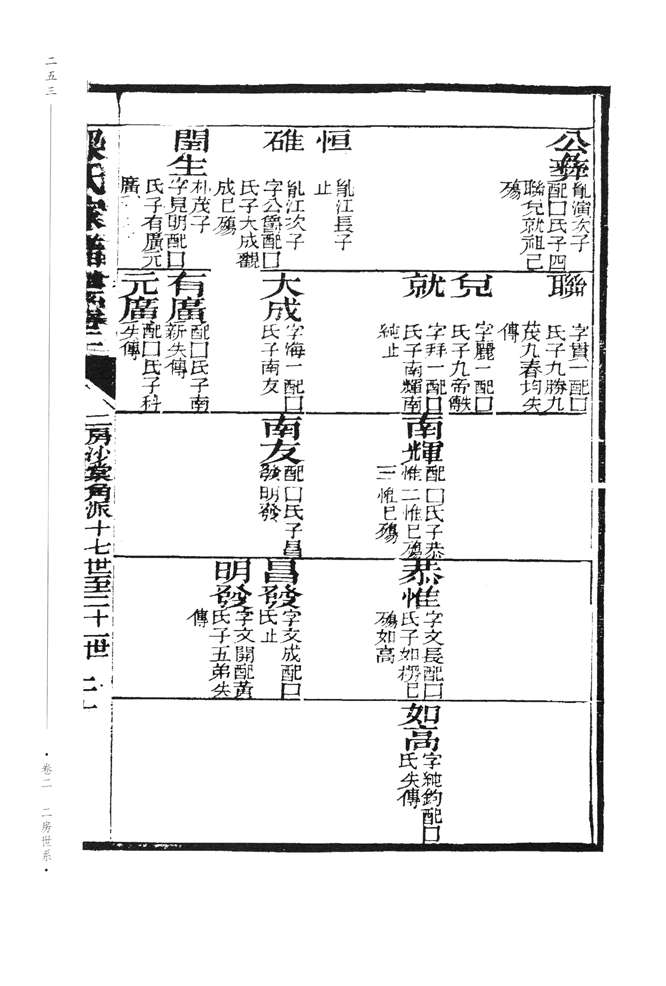 二五三
公彝
胤演次子
配口氏子四
聯兒就祖已
殤
恒
胤江長子
止
碓
胤江次子
字公爵配口
氏子大成觀
成已殤
閏生
朴茂子
字見明配口
氏子有廣元
廣
聯
字貫一配口
氏子九勝九
茂九春均失
傳
兒
字麗一配口
氏子九帝傳失
就
字拜一配口
氏子南輝南
純止
大成
字海一配口
氏子南友
有廣
配口氏子南
新失傳
元廣
配口氏子科
失傳
南輝
配口氏子恭
惟二惟已殤
三惟已殤
南友
配口氏子昌
發明發
恭惟
字文長配口
氏子如榜已
殤如高
昌發
字文成配口
氏止
明發
字文開配黃
氏子五弟失
傳
如高
字純鈞配口
氏失傳
梁氏家譜 卷二
二房沙棠角派十七世至二十一世 二十
卷二 二房世系